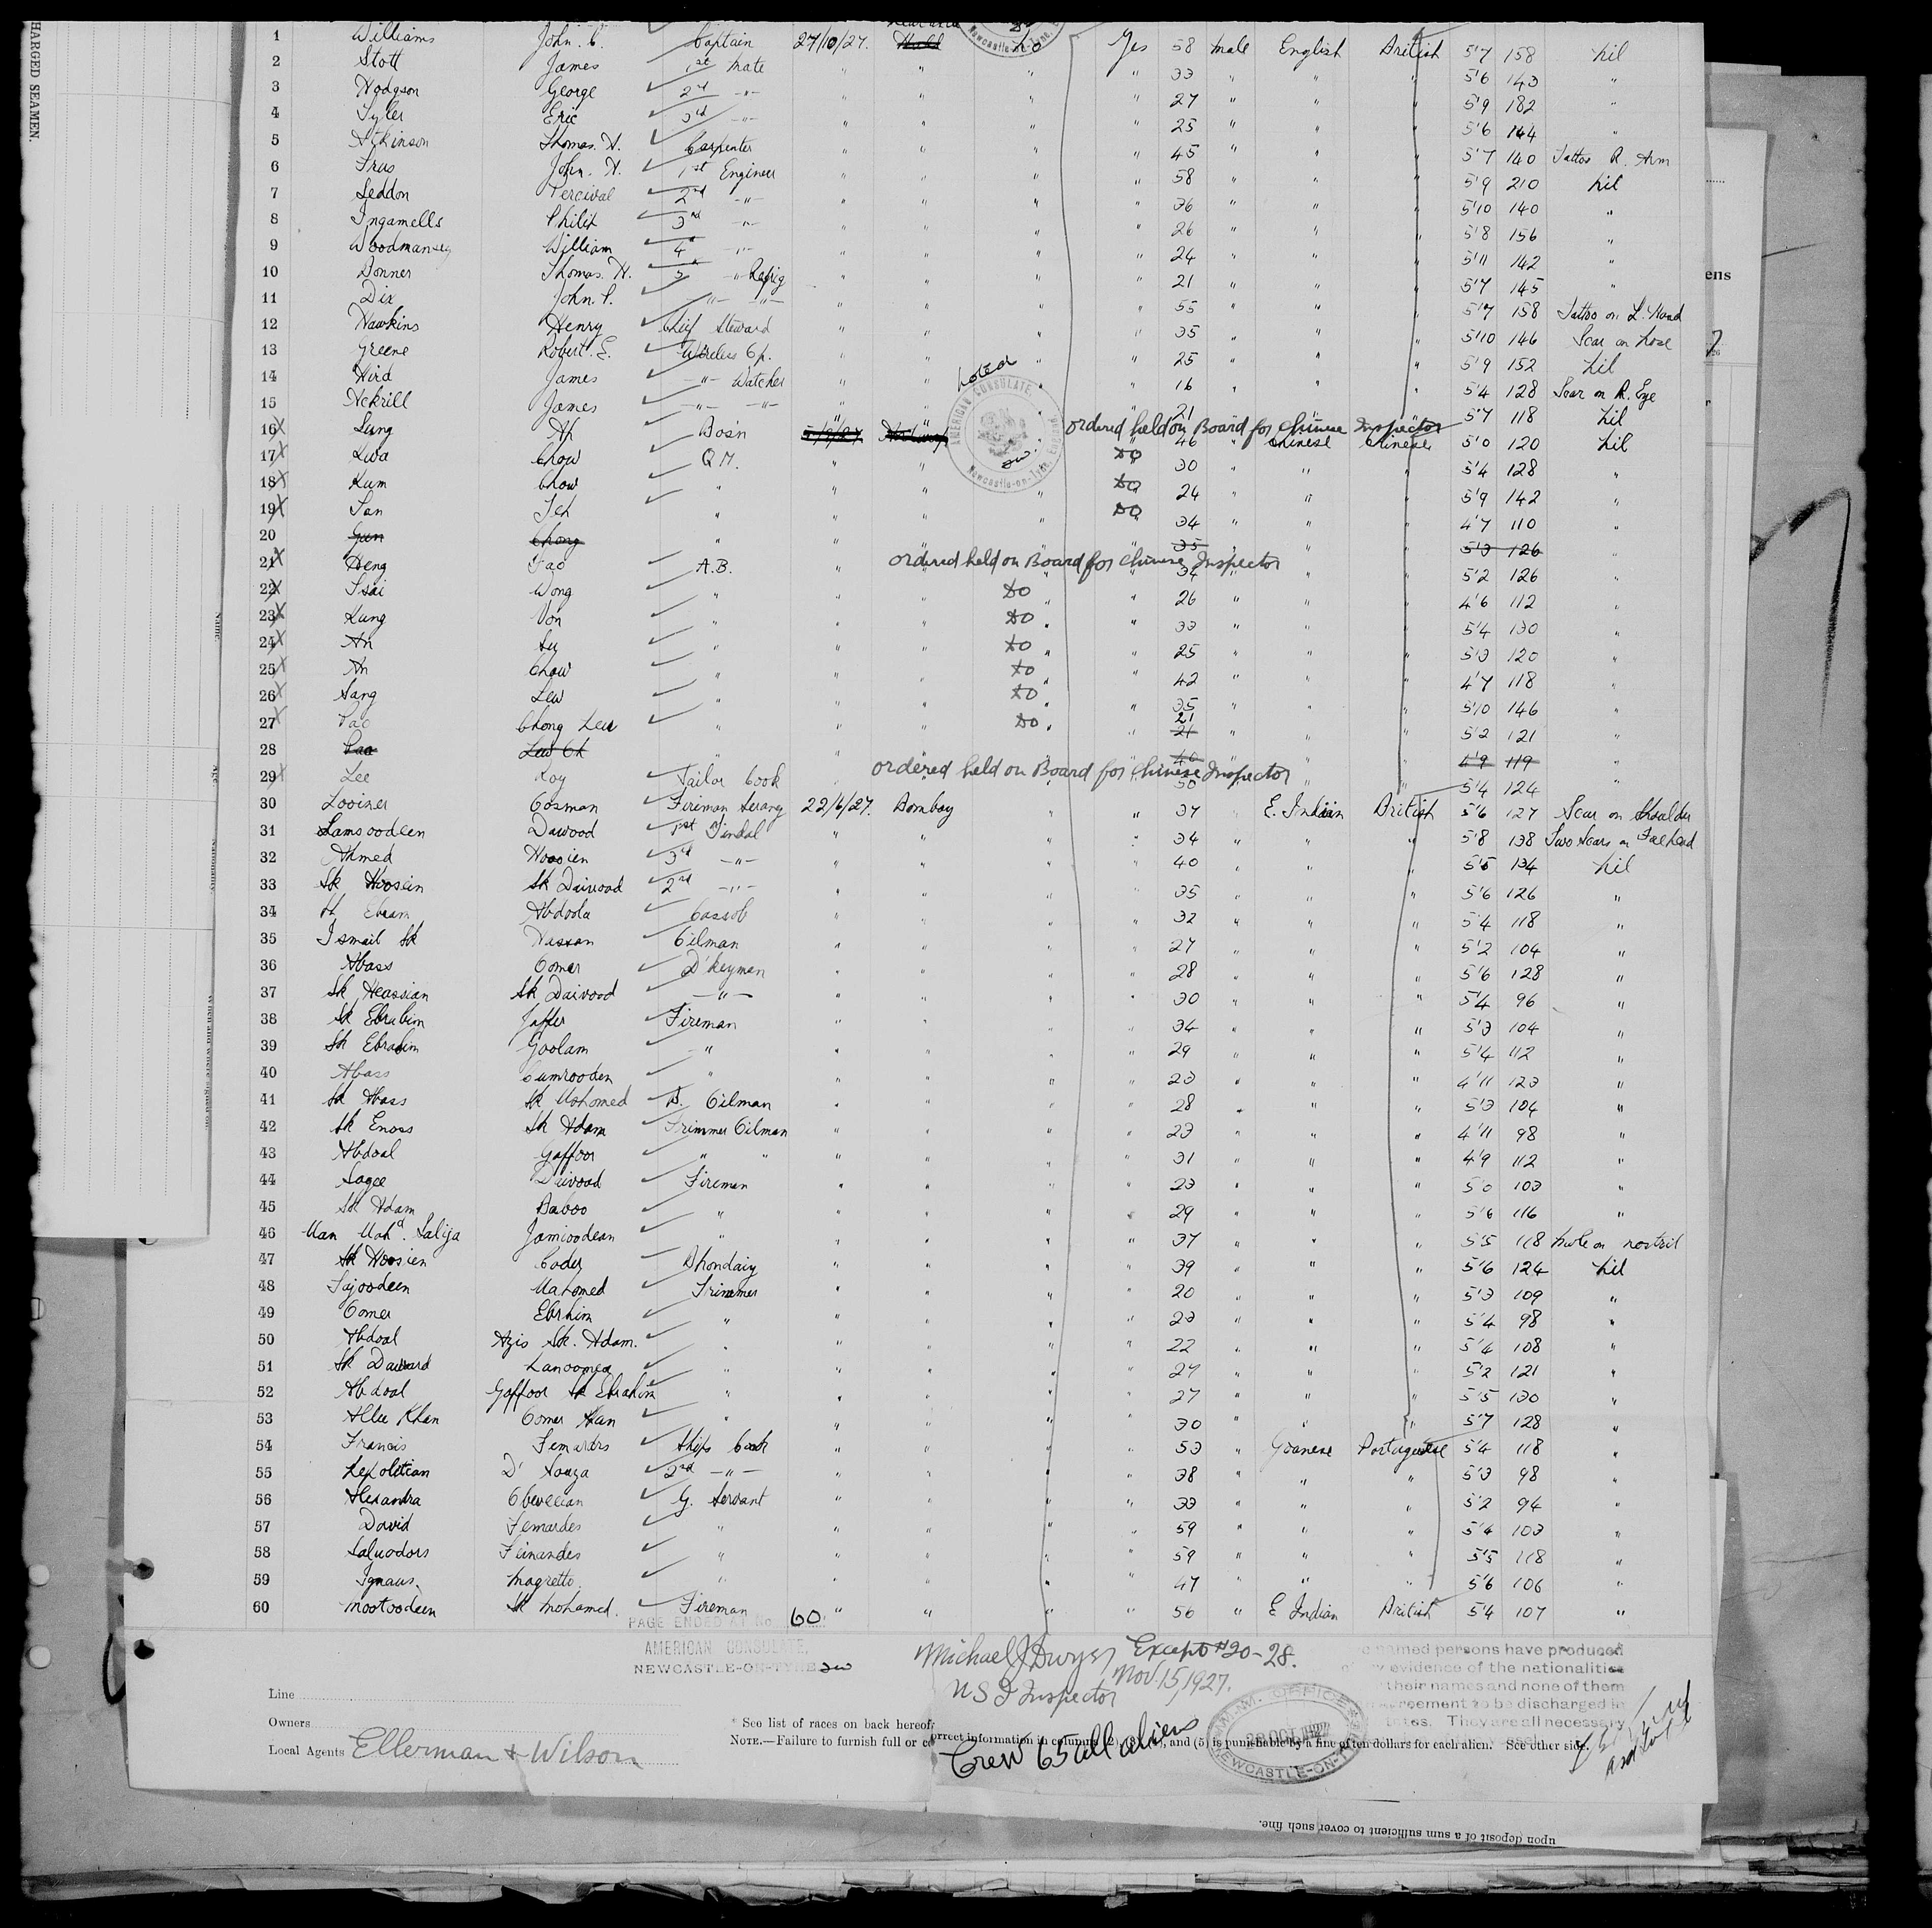 HARGED SEAMEN.
1 Williams John. C. Captain 27/10/27. Hull No Yes 58 Male English British 5'7 158 Nil
2 Stott James 1st Mate " " " " 33 " " " 5'6 143 "
3 Hodgson George 2nd -"- " " " " 27 " " " 5'9 182 "
4 Tyler Eric 3rd -"- " " " " 25 " " " 5'6 144 "
5 Atkinson Thomas. H. Carpenter " " " " 45 " " " 5'7 140 Tattoo R. Arm
6 John. H. 1st Engineer " " " " 58 " " " 5'9 210 Nil
7 Seddon Percival 2nd -"- " " " " 36 " " " 5'10 140 "
8 Ingamells Philip 3rd -"- " " " " 26 " " " 5'8 156 "
9 Woodmansey William 4th -"- " " " " 24 " " " 5'11 142 "
10 Bonner Thomas. H. 5th -"- Refrig " " " " 21 " " " 5'7 145 "
11 Dix John. P. -"- -"- " " " " 55 " " " 5'7 158 Tattoo on L. Hand
12 Hawkins Henry Chief Steward " " " " 35 " " " 5'10 146 Scar on Nose
13 Greene Robert. E. Wireless Op. " " " " 25 " " " 5'9 152 Nil
14 Hird James -"- Watcher " " " " 16 " " " 5'4 128 Scar on R. Eye
15 Ackrill James -"- -"- " " " " 21 " " " 5'7 118 Nil
Noted
AMERICAN CONSULATE, Newcastle-on-Tyne, England
ordered held on Board for Chinese Inspector
16 X Lung Ah Bos'n 46 " Chinese Chinese 5'0 120 Nil
17 X Kwa Chow Q.M. " " " do 30 " " " 5'4 128 "
18 X Kum Chow " " " " do 24 " " " 5'9 142 "
19 X San Jeh " " " " do 34 " " " 4'7 110 "
20 Gun Chong " " " " " 35 " " " 5'3 126 "
ordered held on Board for Chinese Inspector
21 X Heng Fao A.B. " " " " 34 " " " 5'2 126 "
22 X Tsai Wong " " " do " 26 " " " 4'6 112 "
23 X Kung Von " " " do " 33 " " " 5'4 130 "
24 X An Su " " " do " 25 " " " 5'3 120 "
25 X An Chow " " " do " 42 " " " 4'7 118 "
26 X Sang Lew " " " do " 35 " " " 5'10 146 "
27 X Pao Chong Lew " " " do " 21 21 " " " 5'2 121 "
28 Pao Lew Ch " " " " 4'9 119 "
ordered held on Board for Chinese Inspector
29 X Lee Loy Tailor Cook " " " " 50 " " " 5'4 124 "
30 Looiner Oosman Fireman Serang 22/6/27. Bombay " " 37 " E. Indian British 5'6 127 Scar on Shoulder
31 Lamsoodeen Dawood 1st Tindal " " " " 34 " " " 5'8 138 Two Scars on Forehead
32 Ahmed Hoosien 3rd -"- " " " " 40 " " " 5'5 134 Nil
33 Sk Hoosein Sk Daiwood 2nd -"- " " " " 35 " " " 5'6 126 "
34 Ebram Abdoola Cassob " " " " 32 " " " 5'4 118 "
35 Ismail Sk Hassan Oilman " " " " 27 " " " 5'2 104 "
36 Abass Oomer D'keyman " " " " 28 " " " 5'6 128 "
37 Sk Heassian Sk Daiwood -"- " " " " 30 " " " 5'4 96 "
38 Sk Ebrahim Jaffer Fireman " " " " 34 " " " 5'3 104 "
39 Sk Ebrahim Goolam " " " " " 29 " " " 5'4 112 "
40 Abass Cumrooden " " " " " 23 " " " 4'11 123 "
41 Sk Abass Sk Mahomed D. Oilman " " " " 28 " " " 5'3 104 "
42 Sk Enoss Sk Adam Trimmer Oilman " " " " 23 " " " 4'11 98 "
43 Abdoal Gaffoor " " " " " " 31 " " " 4'9 112 "
44 Sagee Daiwood Fireman " " " " 23 " " " 5'0 103 "
45 Sk Adam Baboo " " " " " 29 " " " 5'6 116 "
46 Man Moh'd. Salija Jamioodean " " " " " 37 " " " 5'5 118 Hole on nostril
47 Sk Hoosien Cader Dhondaiy " " " " 39 " " " 5'6 124 Nil
48 Tajoodeen Mahomed Trimmer " " " " 20 " " " 5'3 109 "
49 Oomer Ebrhim " " " " " 23 " " " 5'4 98 "
50 Abdoal Azis Sk. Adam. " " " " " 22 " " " 5'4 108 "
51 Sk Dawoard " " " " " 27 " " " 5'2 121 "
52 Abdoal Gaffoor Sk Ebrahim " " " " " 27 " " " 5'5 130 "
53 Allee Khan Oomer Khan " " " " " 30 " " " 5'7 128 "
54 Francis Fernandes Ships Cook " " " " 53 " Goanese Portuguese 5'4 118 "
55 Nepolitian D' Souza 2nd -"- " " " " 38 " " " 5'3 98 "
56 Alexandra G. Servant " " " " 33 " " " 5'2 94 "
57 David Fernardes " " " " " 59 " " " 5'4 103 "
58 Saluodors Feinandes " " " " " 59 " " " 5'5 118 "
59 Ignaus. Magretto. " " " " " 47 " " " 5'6 106 "
60 Mootoodeen Sk Mohamed. Fireman " " " " 56 " E Indian British 5'4 107 "
PAGE ENDED AT No. 60.
AMERICAN CONSULATE,
NEWCASTLE-ON-TYNE
Michael J Dwyer Except #20-28.
U S I Inspector Nov. 15, 1927.
named persons have produced
evidence of the nationalities
their names and none of them
agreement to be discharged in
States. They are all necessary
Line
Owners
Local Agents Ellerman & Wilson
* See list of races on back hereof
NOTE.—Failure to furnish full or correct information in columns (2), (3), (4), and (5) is punishable by a fine of ten dollars for each alien. See other side.
Crew 65 all aliens
M.M. OFFICE
28 OCT 1927
NEWCASTLE-ON-TYNE
upon deposit of a sum sufficient to cover such fine.